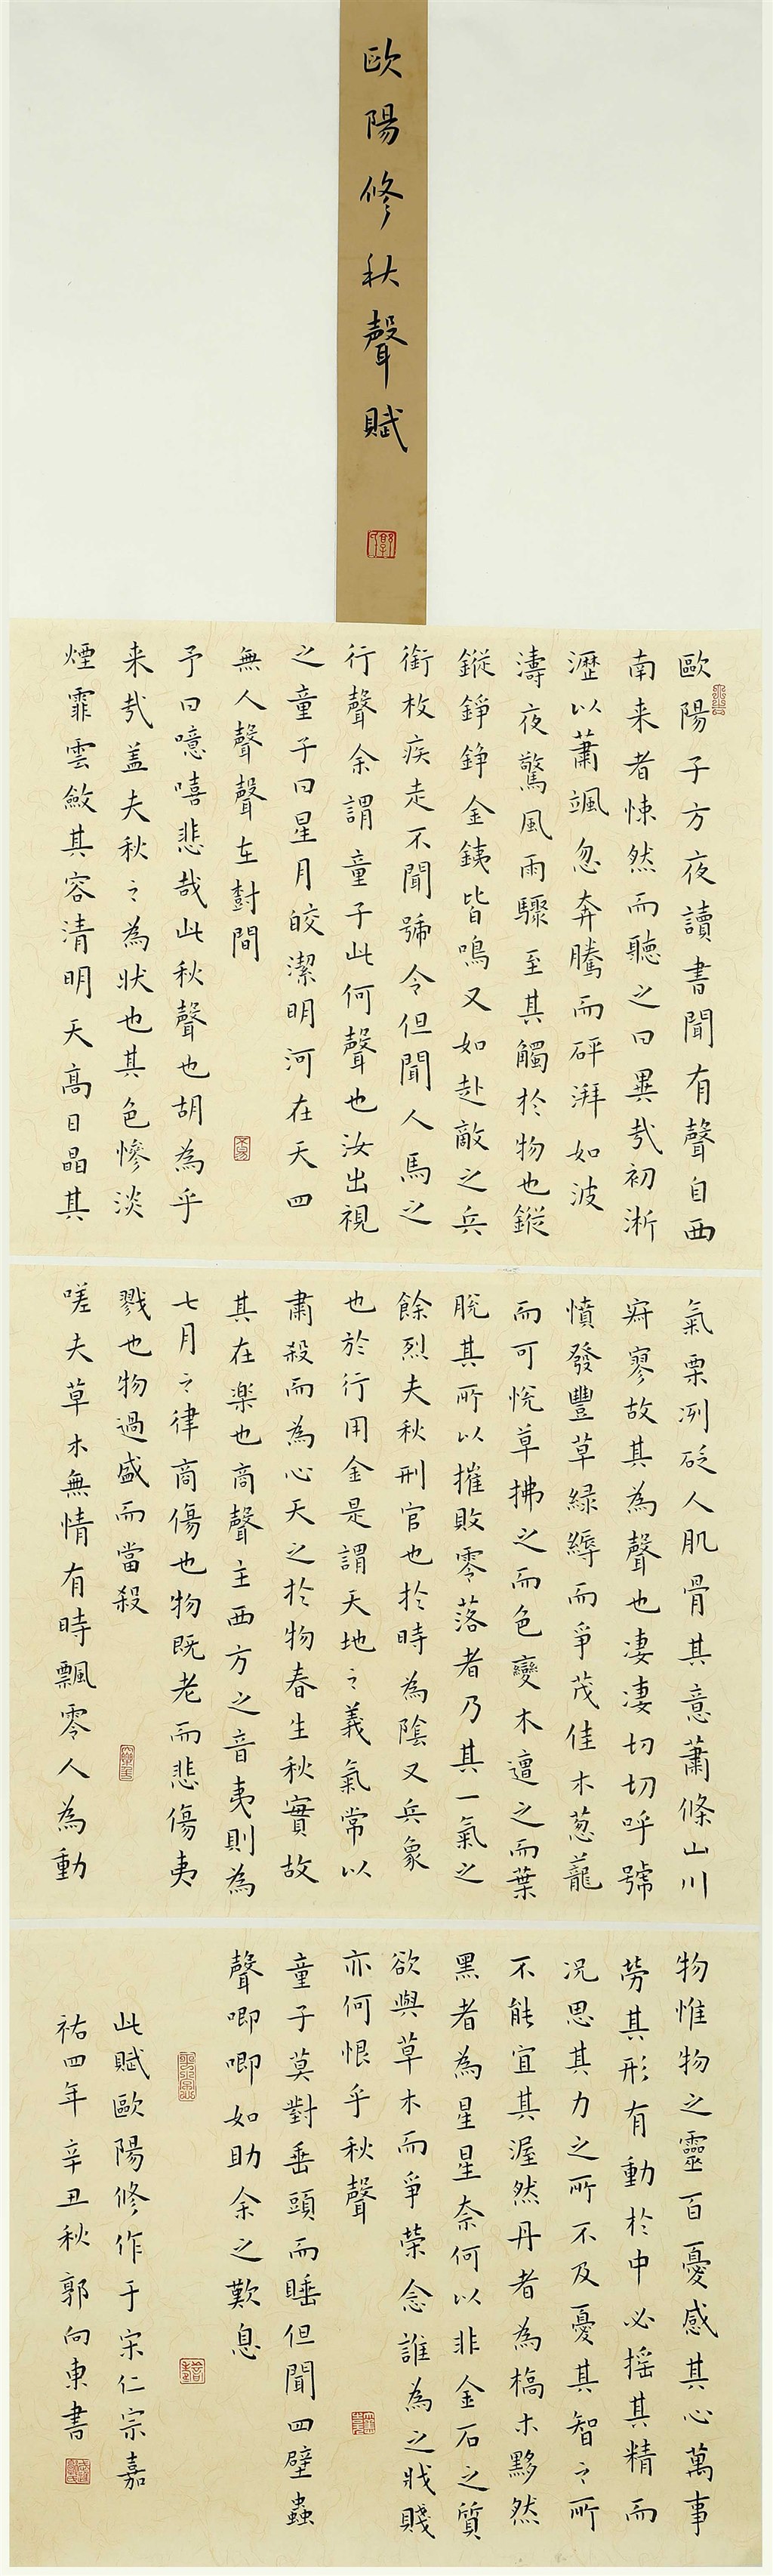 歐陽修秋聲賦
歐陽子方夜讀書聞有聲自西
南来者悚然而聽之曰異㢤初淅
瀝以蕭颯忽奔騰而砰湃如波
濤夜驚風雨驟至其觸於物也鏦
鏦錚錚金鐵皆鳴又如赴敵之兵
銜枚疾走不聞號令但聞人馬之
行聲余謂童子此何聲也汝出視
之童子曰星月皎潔明河在天四
無人聲聲在樹間
予曰噫嘻悲哉此秋聲也胡為乎
来㢤盖夫秋之為狀也其色慘淡
煙霏雲斂其容清明天高日晶其
氣栗冽砭人肌骨其意蕭條山川
寂寥故其為聲也凄凄切切呼號
憤發豐草緑縟而爭茂佳木葱蘢
而可悅草拂之而色變木遭之而葉
脫其所以摧敗零落者乃其一氣之
餘烈夫秋刑官也於時為陰又兵象
也於行用金是謂天地之義氣常以
肅殺而為心天之於物春生秋實故
其在楽也商聲主西方之音夷則為
七月之律商傷也物既老而悲傷夷
戮也物過盛而當殺
嗟夫草木無情有時飄零人為動
物惟物之靈百憂感其心萬事
勞其形有動於中必揺其精而
况思其力之所不及憂其智之所
不能宜其渥然丹者為槁木黟然
黑者為星星奈何以非金石之質
欲與草木而爭榮念誰為之戕賊
亦何恨乎秋聲
童子莫對垂頭而睡但聞四壁蟲
聲唧唧如助余之歎息
此賦歐陽修作于宋仁宗嘉
祐四年辛丑秋郭向東書